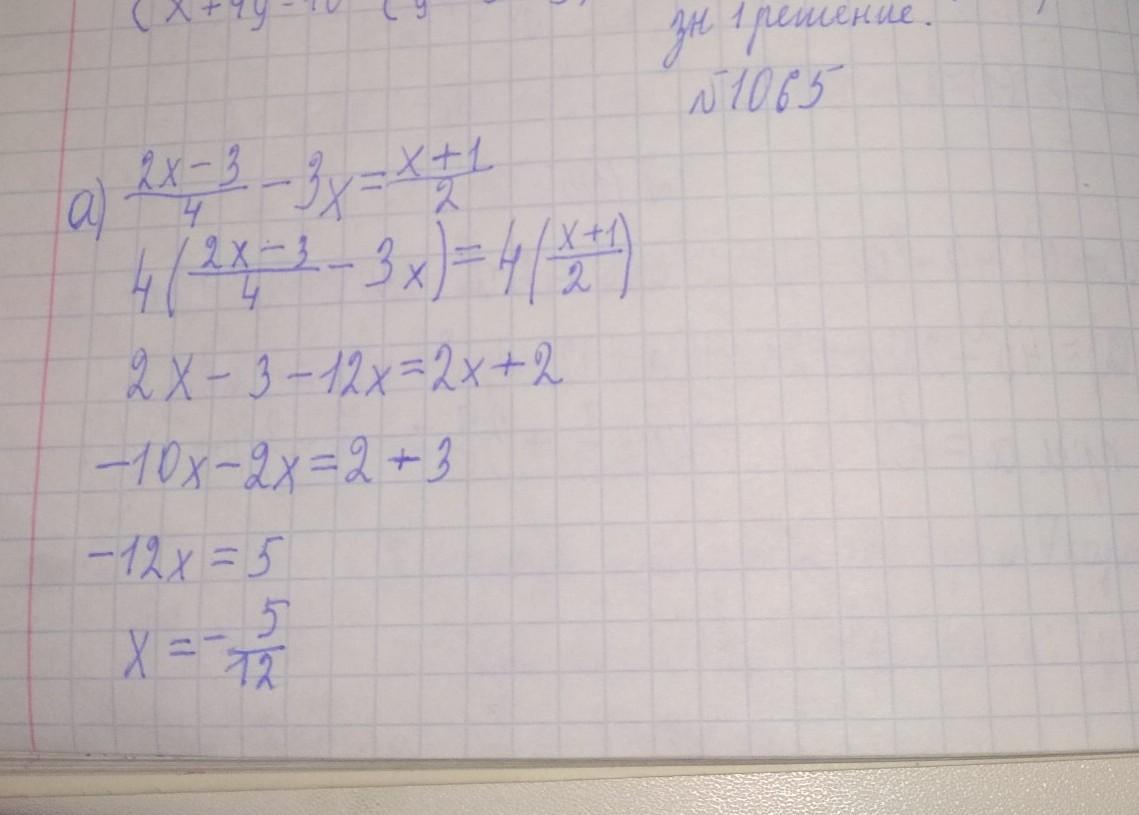 (x+4y=10 (y
зн 1 решение.
№1065
а) \frac{2x-3}{4} - 3x = \frac{x+1}{2}
4(\frac{2x-3}{4} - 3x) = 4(\frac{x+1}{2})
2x - 3 - 12x = 2x + 2
-10x - 2x = 2 + 3
-12x = 5
x = -\frac{5}{12}